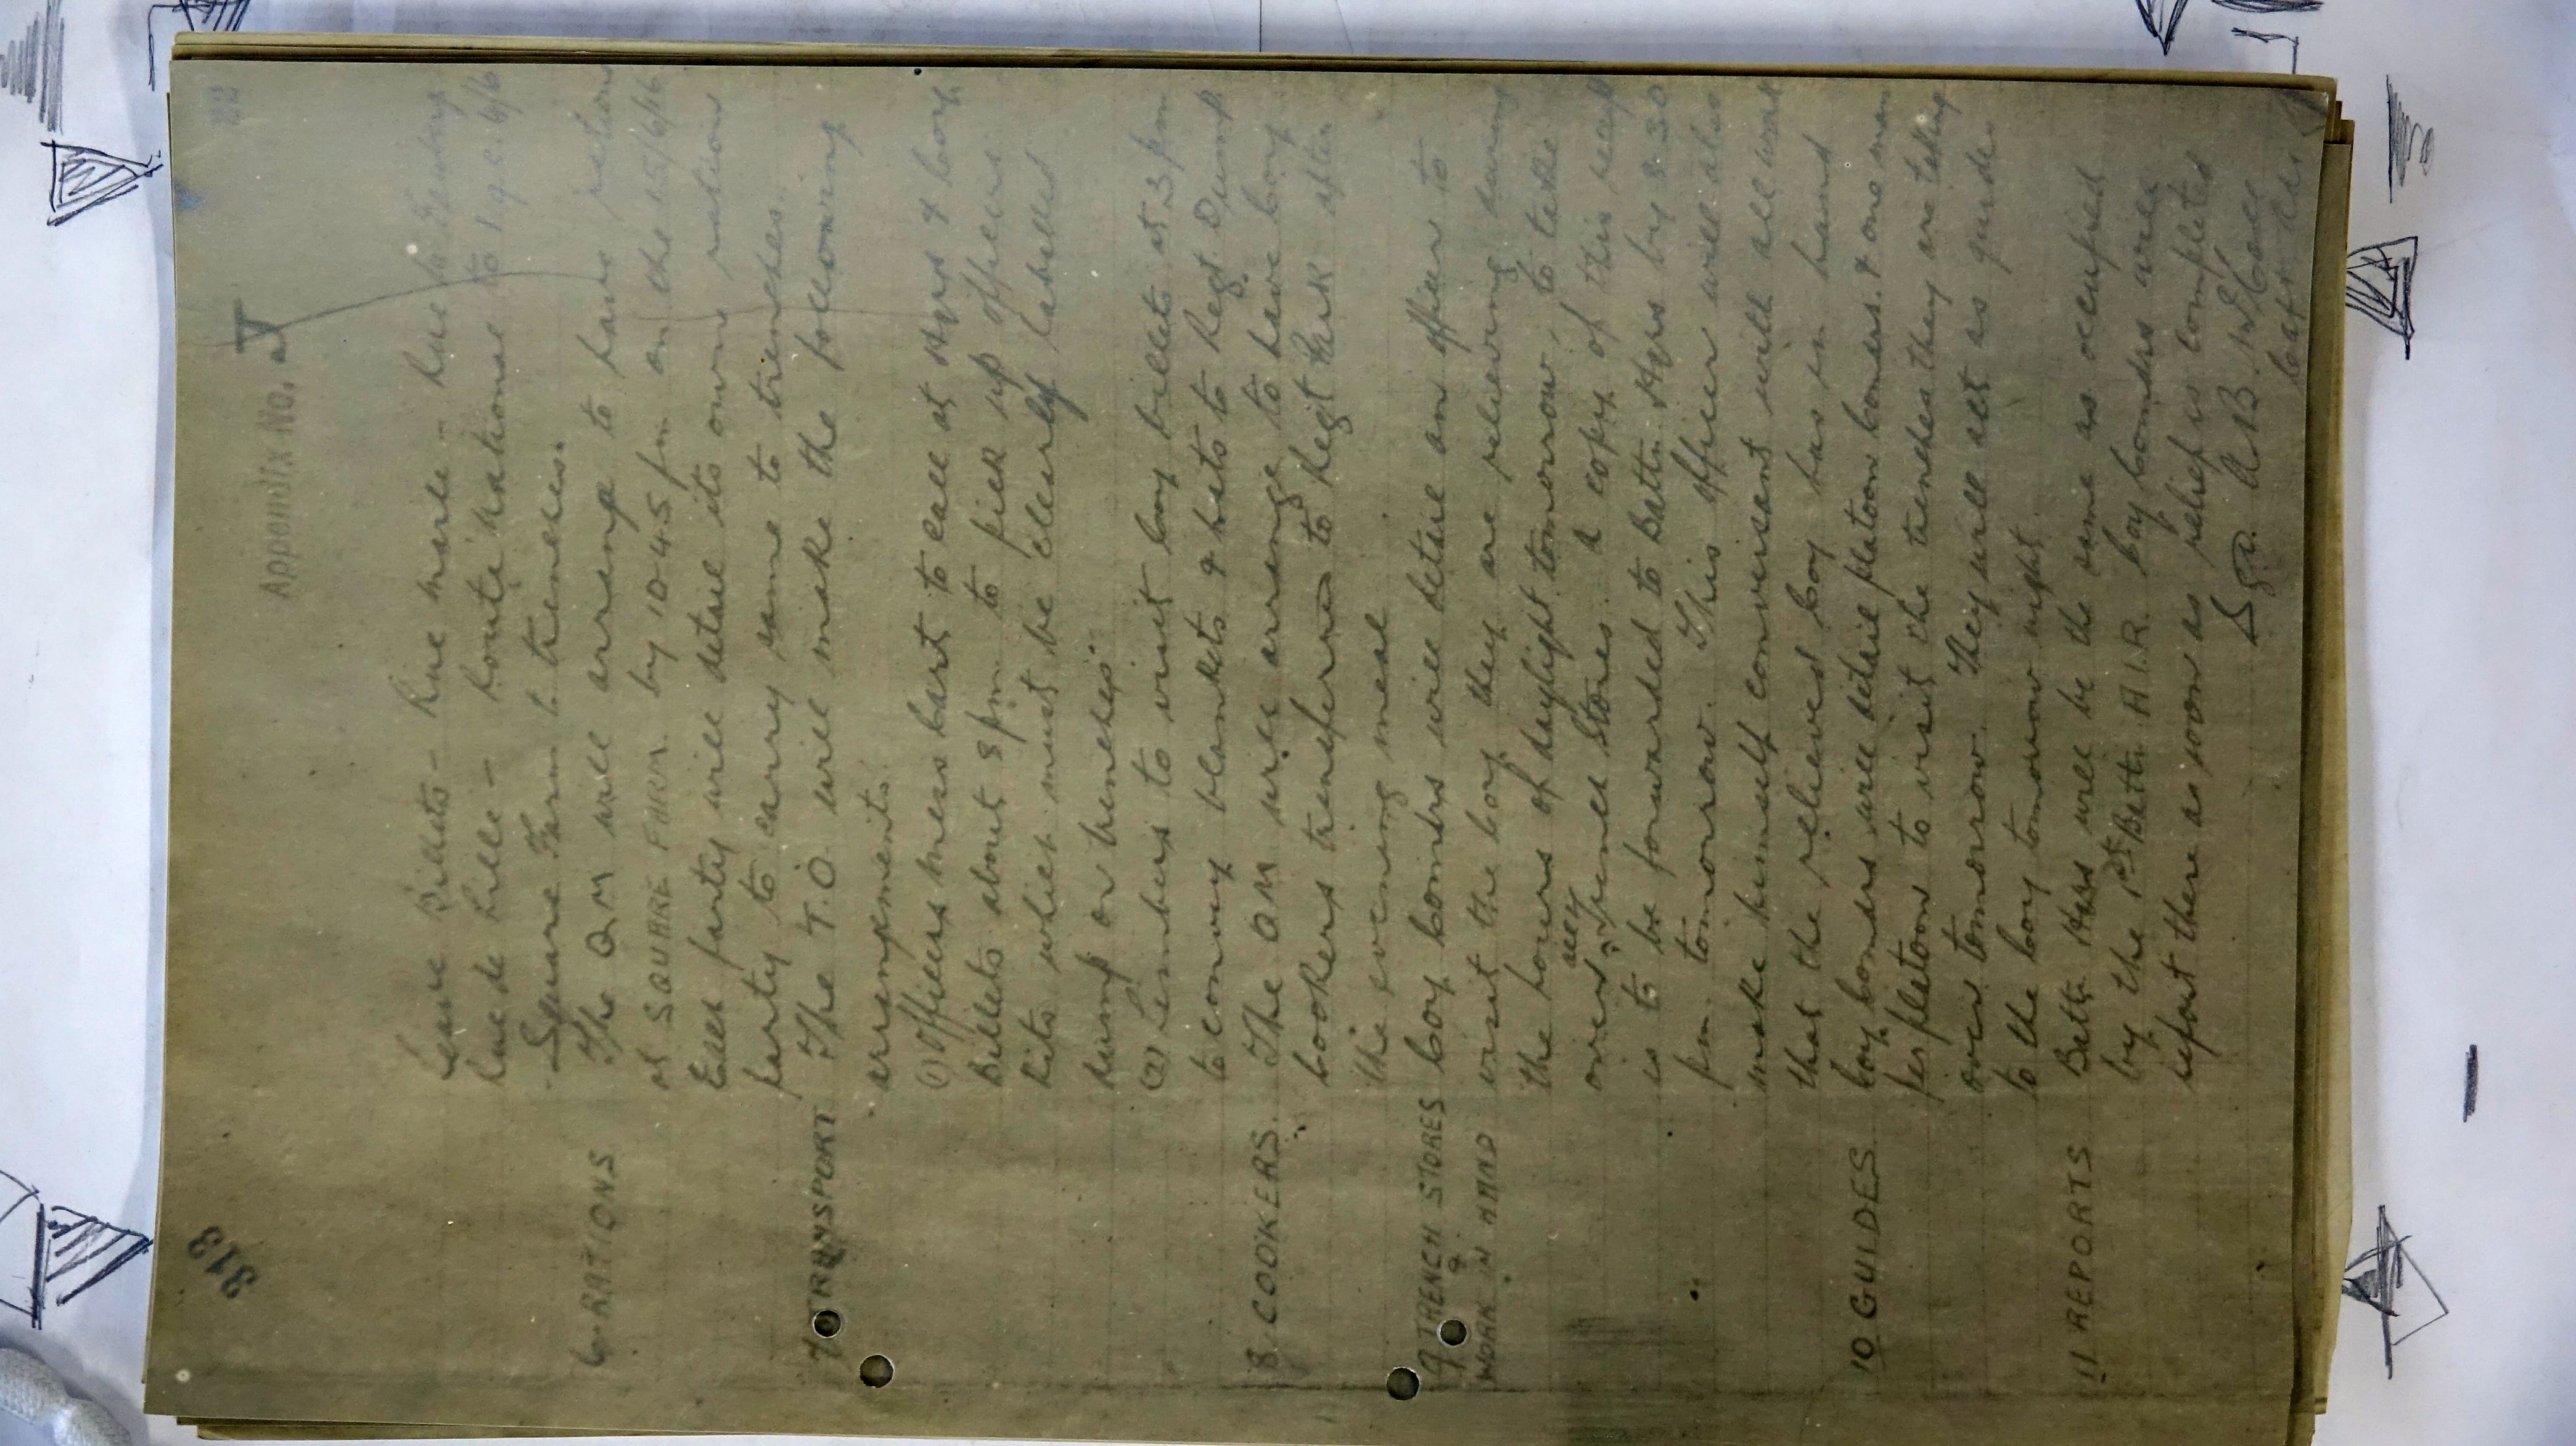 313
Appendix No. J
Leave Billets - Rue Marle - Rue
Rue de Lille - Route Nationale to
Square Farm to trenches.
6. RATIONS The QM will arrange to have rations
at SQUARE FARM by 10.45 pm on the 15/6/16
Each party will detail its own ration
party to carry same to trenches.
7 TRANSPORT The T.O will make the following
arrangements.
(1) Officers mess cart to call at Hqrs & Coy
Billets about 8 pm to pick up officers
kits which must be clearly labelled
"dump or trenches"
(2) Limbers to visit Coy billets at 3 pm
to convey blankets & hats to Regt Dump
8. COOKERS. The QM will arrange to have Coy
Cookers transferred to Regt Park after
the evening meal
9 TRENCH STORES Coy Comdrs will detail an officer to
& WORK IN HAND visit the Coy they are relieving during
the hours of daylight tomorrow, to take
over all trench stores. A copy of this receipt
is to be forwarded to Battn Hqrs by 8.30
pm. tomorrow. This officer will also
make himself conversant with all work
that the relieved Coy has in hand
10 GUIDES. Coy Comdrs will detail platoon Comdrs & one man
per platoon to visit the trenches they are taking
over tomorrow. They will act as guides
to the Coy tomorrow night.
11 REPORTS Battn Hqrs will be the same as occupied
by the 1st Battn A.I.F. Coy Comdrs will
report there as soon as relief is completed
Sgd. A.B.
Capt